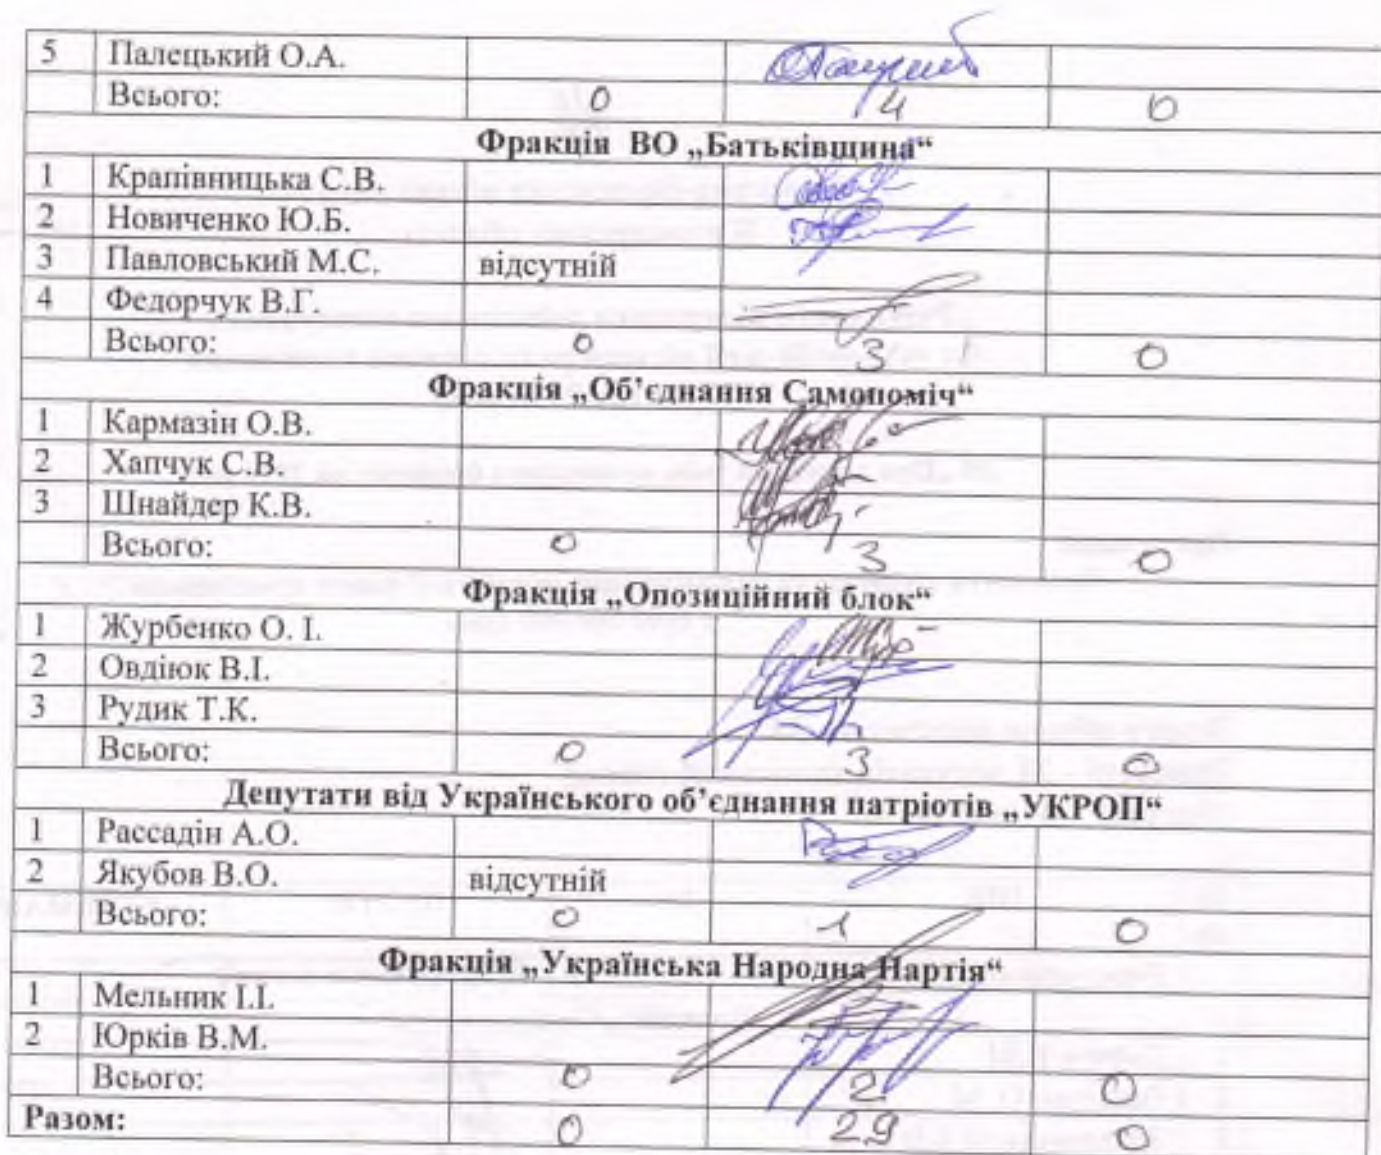 5 Палецький О.А.
Всього: 0 4 0
Фракція ВО „Батьківщина“
1 Крапівницька С.В.
2 Новиченко Ю.Б.
3 Павловський М.С. відсутній
4 Федорчук В.Г.
Всього: 0 3 0
Фракція „Об’єднання Самопоміч“
1 Кармазін О.В.
2 Хапчук С.В.
3 Шнайдер К.В.
Всього: 0 3 0
Фракція „Опозиційний блок“
1 Журбенко О. І.
2 Овдіюк В.І.
3 Рудик Т.К.
Всього: 0 3 0
Депутати від Українського об’єднання патріотів „УКРОП“
1 Рассадін А.О.
2 Якубов В.О. відсутній
Всього: 0 1 0
Фракція „Українська Народна Партія“
1 Мельник І.І.
2 Юрків В.М.
Всього: 0 2 0
Разом: 0 29 0